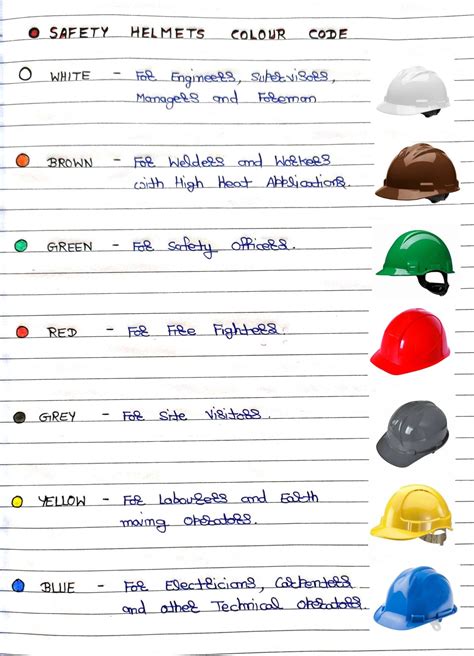 SAFETY HELMETS COLOUR CODE
WHITE - For Engineers, Supervisors,
Managers and Foreman
BROWN - For Welders and Workers
with High Heat Applications.
GREEN - For Safety Officers.
RED - For Fire Fighters.
GREY - For Site Visitors.
YELLOW - For Labourers and Earth
moving operators.
BLUE - For Electricians, Carpenters
and other Technical operators.